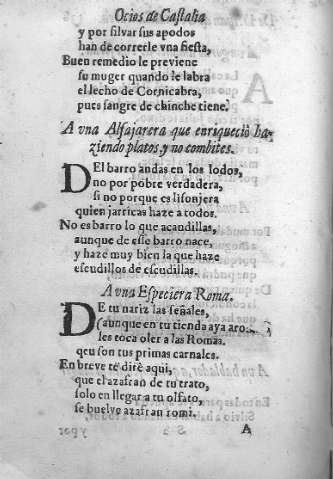 Ocios de Castalia
y por silvar sus apodos
han de correrle vna fiesta,
Buen remedio le previene
su muger quando le labra
el lecho de Cornicabra,
pues sangre de chinche tiene.
A vna Alfajarera que enriqueciò ha-
ziendo platos, y no combites.
DEl barro andas en los lodos,
no por pobre verdadera,
si no porque es lisonjera
quien jarricas haze a todos.
No es barro lo que acaudillas,
aunque de esse barro nace,
y haze muy bien la que haze
escudillos de escudillas.
A vna Especiera Roma.
DE tu nariz las señales,
(aunque en tu tienda aya aro
les toca oler a las Romas.
qeu son tus primas carnales.
En breve te dirè aqui,
que el azafran de tu trato,
solo en llegar a tu olfato,
se buelve azafran romi.
A